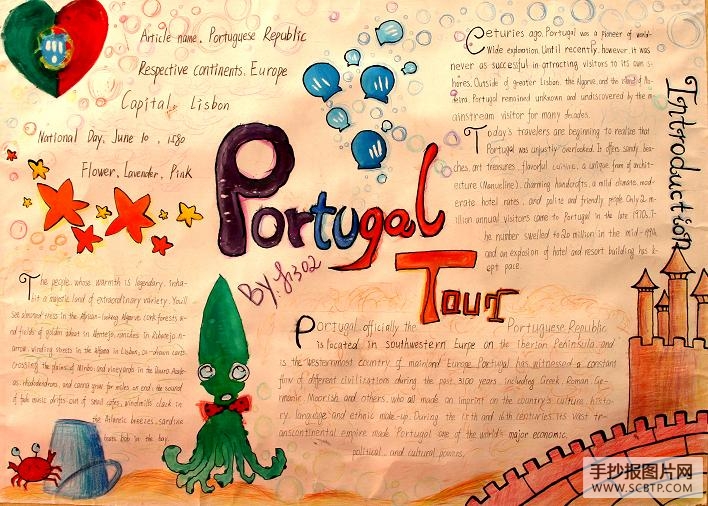 Article name. Portuguese Republic
Respective continents. Europe
Capital. Lisbon
National Day. June 10, 1580
Flower. Lavender, Pink
Portugal
Tour
By: 
Introduction
Ceturies ago, Portugal was a pioneer of world-
wide exploration. Until recently, however it was
never as successful in attracting visitors to its own s-
hores. Outside of greater Lisbon, the Algarve, and the island of Ma-
deira, Portugal remained unknown and undiscovered by the m
ainstream visitor for many decades.
Today's travelers are beginning to realize that
Portugal was unjustly overlooked. It offers sandy bea-
ches, art treasures, flavorful cuisine, a unique form of archit-
ecture (Manueline), charming handcrafts, a mild climate, mod-
erate hotel rates, and polite and friendly people. Only 2 m-
illion annual visitors came to Portugal in the late 1970s. T-
he number swelled to 20 million in the mid-
and an explosion of hotel and resort building has k-
ept pace.
The people, whose warmth is legendary, inha-
bit a majestic land of extraordinary variety. You'll
see almond trees in the African-looking Algarve, cork forests a-
nd fields of golden in Alentejo, ranches in Ribatejo, n-
arrow, winding streets in the Alfama in Lisbon, ox-drawn carts
crossing the plains of Minho, and vineyards in the Douro
rhododendrons, and canna grow for miles on end; the sound
of fado music drifts out of small cafes; windmills clack in
the Atlantic breezes, sardine
boats bob in the bay.
Portugal officially the Portuguese Republic
is located in southwestern Eurpe on the Iberian Peninsula. and
is the westernmost country of mainland Europe. Portugal has witnessed a constant
flow of different civilizations during the past 3100 years. including Greek. Roman. Ge-
rmanic Moorish and others. who all made an imprint on the country's culture. histo-
ry. language and ethnic make-up. During the 15 th and 16 th centuries. its vast tr-
anscontinental empire made Portugal one of the world's major economic.
political. and cultural powers.
手抄报图片网
WWW.SCBTP.COM